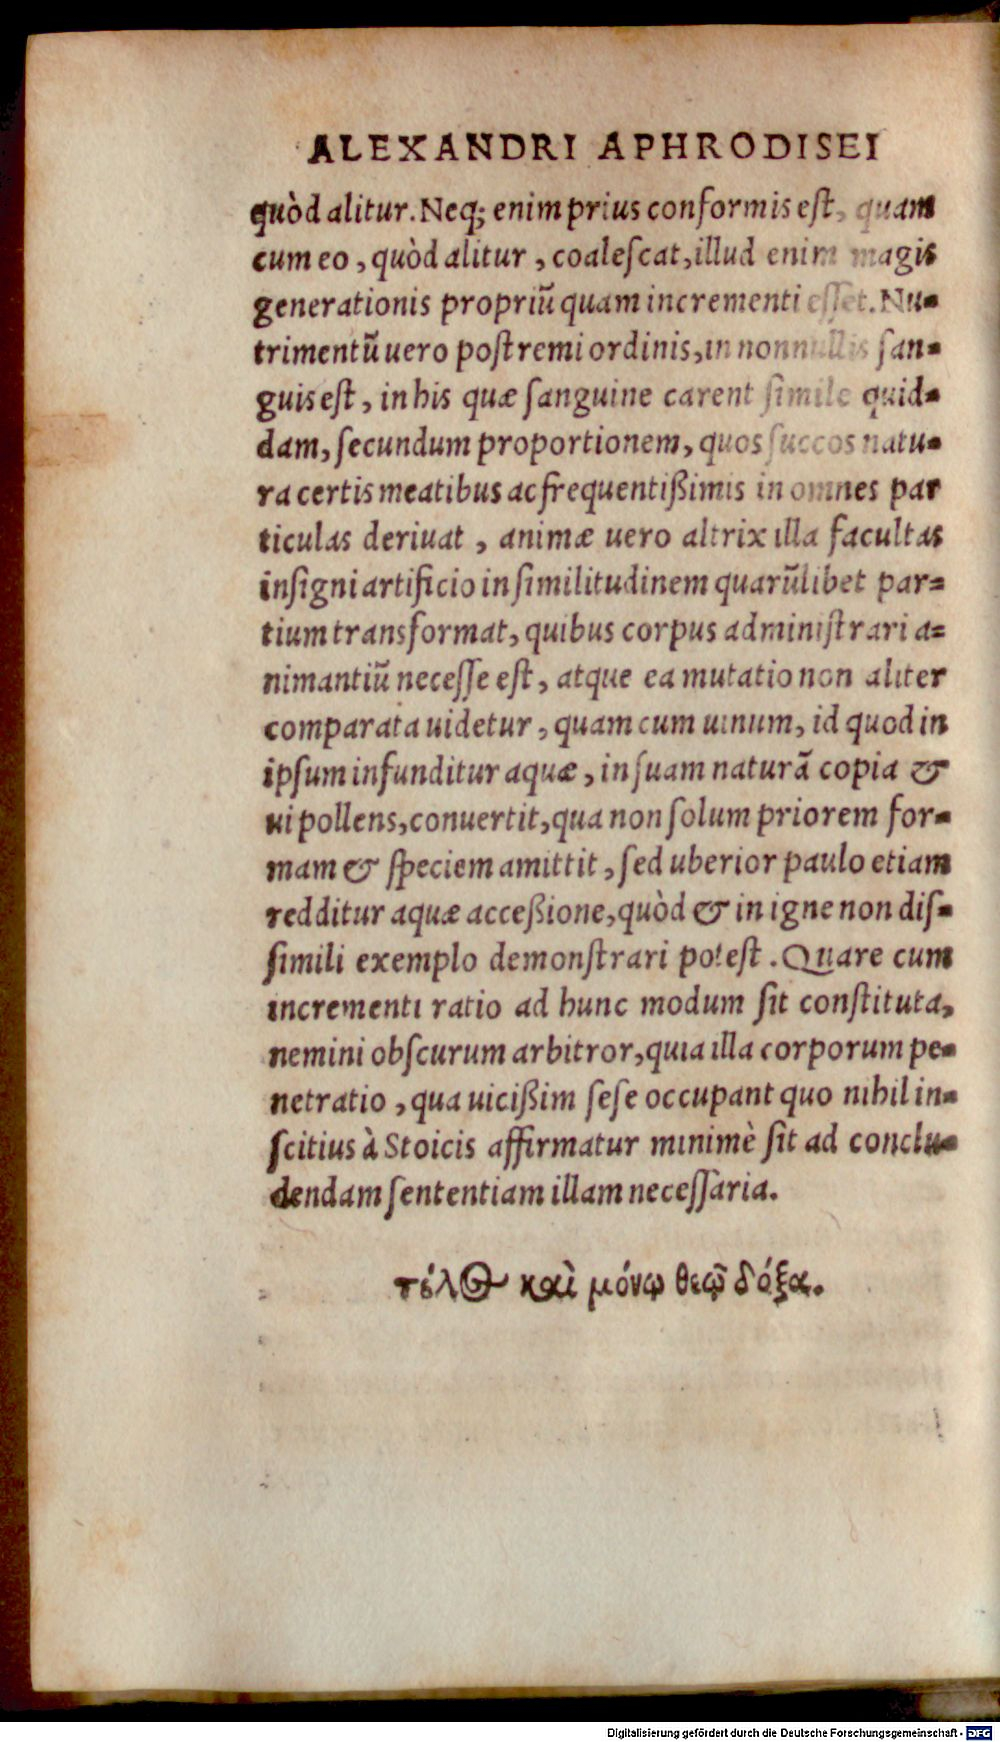 ALEXANDRI APHRODISEI
quòd alitur. Neq; enim prius conformis est, quam
cum eo, quòd alitur, coalescat, illud enim magis
generationis propriũ quam incrementi esset. Nu-
trimentũ uero postremi ordinis, in nonnullis san-
guis est, in his quæ sanguine carent simile quid-
dam, secundum proportionem, quos succos natu-
ra certis meatibus ac frequentißimis in omnes par
ticulas deriuat, animæ uero altrix illa facultas
insigni artificio in similitudinem quarũlibet par-
tium transformat, quibus corpus administrari a-
nimantiũ necesse est, atque ea mutatio non aliter
comparata uidetur, quam cum uinum, id quod in
ipsum infunditur aquæ, in suam naturã copia &
ui pollens, conuertit, qua non solum priorem for-
mam & speciem amittit, sed uberior paulo etiam
redditur aquæ acceßione, quòd & in igne non dis-
simili exemplo demonstrari potest. Quare cum
incrementi ratio ad hunc modum sit constituta,
nemini obscurum arbitror, quia illa corporum pe-
netratio, qua uicißim sese occupant quo nihil in-
scitius à Stoicis affirmatur minimè sit ad conclu-
dendam sententiam illam necessaria.
τέλος καὶ μόνῳ θεῷ δόξα.
Digitalisierung gefördert durch die Deutsche Forschungsgemeinschaft - DFG